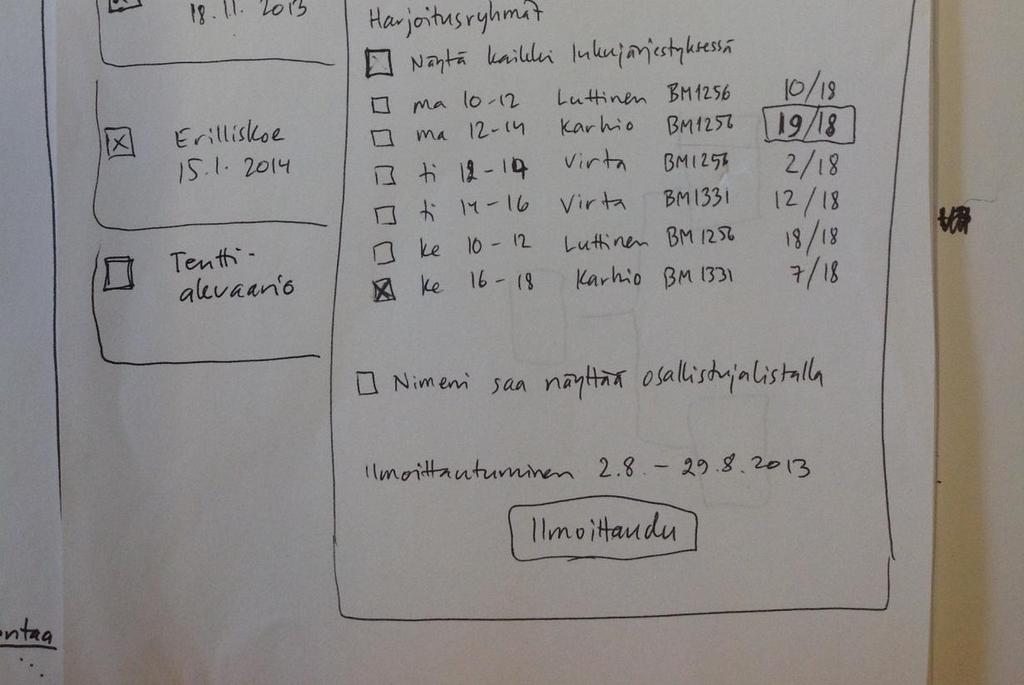 18.11.2013
Erilliskoe
15.1. 2014
Tentti-
akvaario
Harjoitusryhmät
Näytä kaikki lukujärjestyksessä
ma 10-12 Luttinen BM1256 10/18
ma 12-14 Karhio BM1256 19/18
ti 12-14 Virta BM1256 2/18
ti 14-16 Virta BM1331 12/18
ke 10-12 Luttinen BM1256 18/18
ke 16-18 Karhio BM1331 7/18
Nimeni saa näyttää osallistujalistalla
Ilmoittautuminen 2.8. - 29.8.2013
Ilmoittaudu